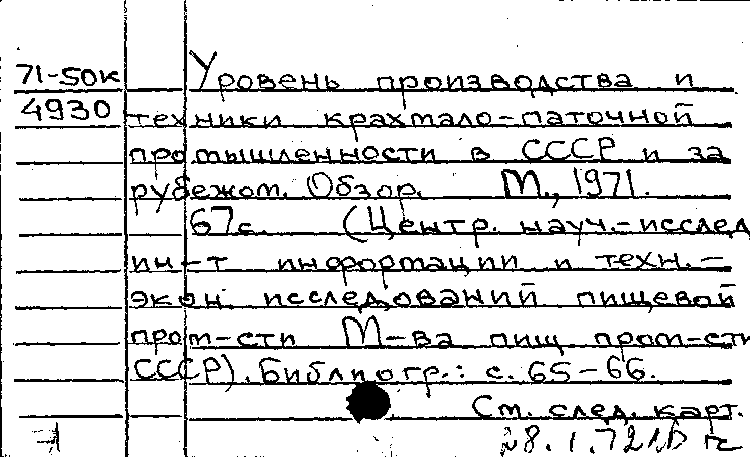 71-50к Уровень производства и
4930 техники крахмало-паточной
промышленности в СССР и за
рубежом. Обзор. М., 1971.
67с. (Центр. науч.-исслед.
ин-т информации и техн.-
экон. исследований пищевой
пром-сти М-ва пищ пром-сти
СССР). Библиогр.: с. 65-66.
См. след. карт.
28.1.72